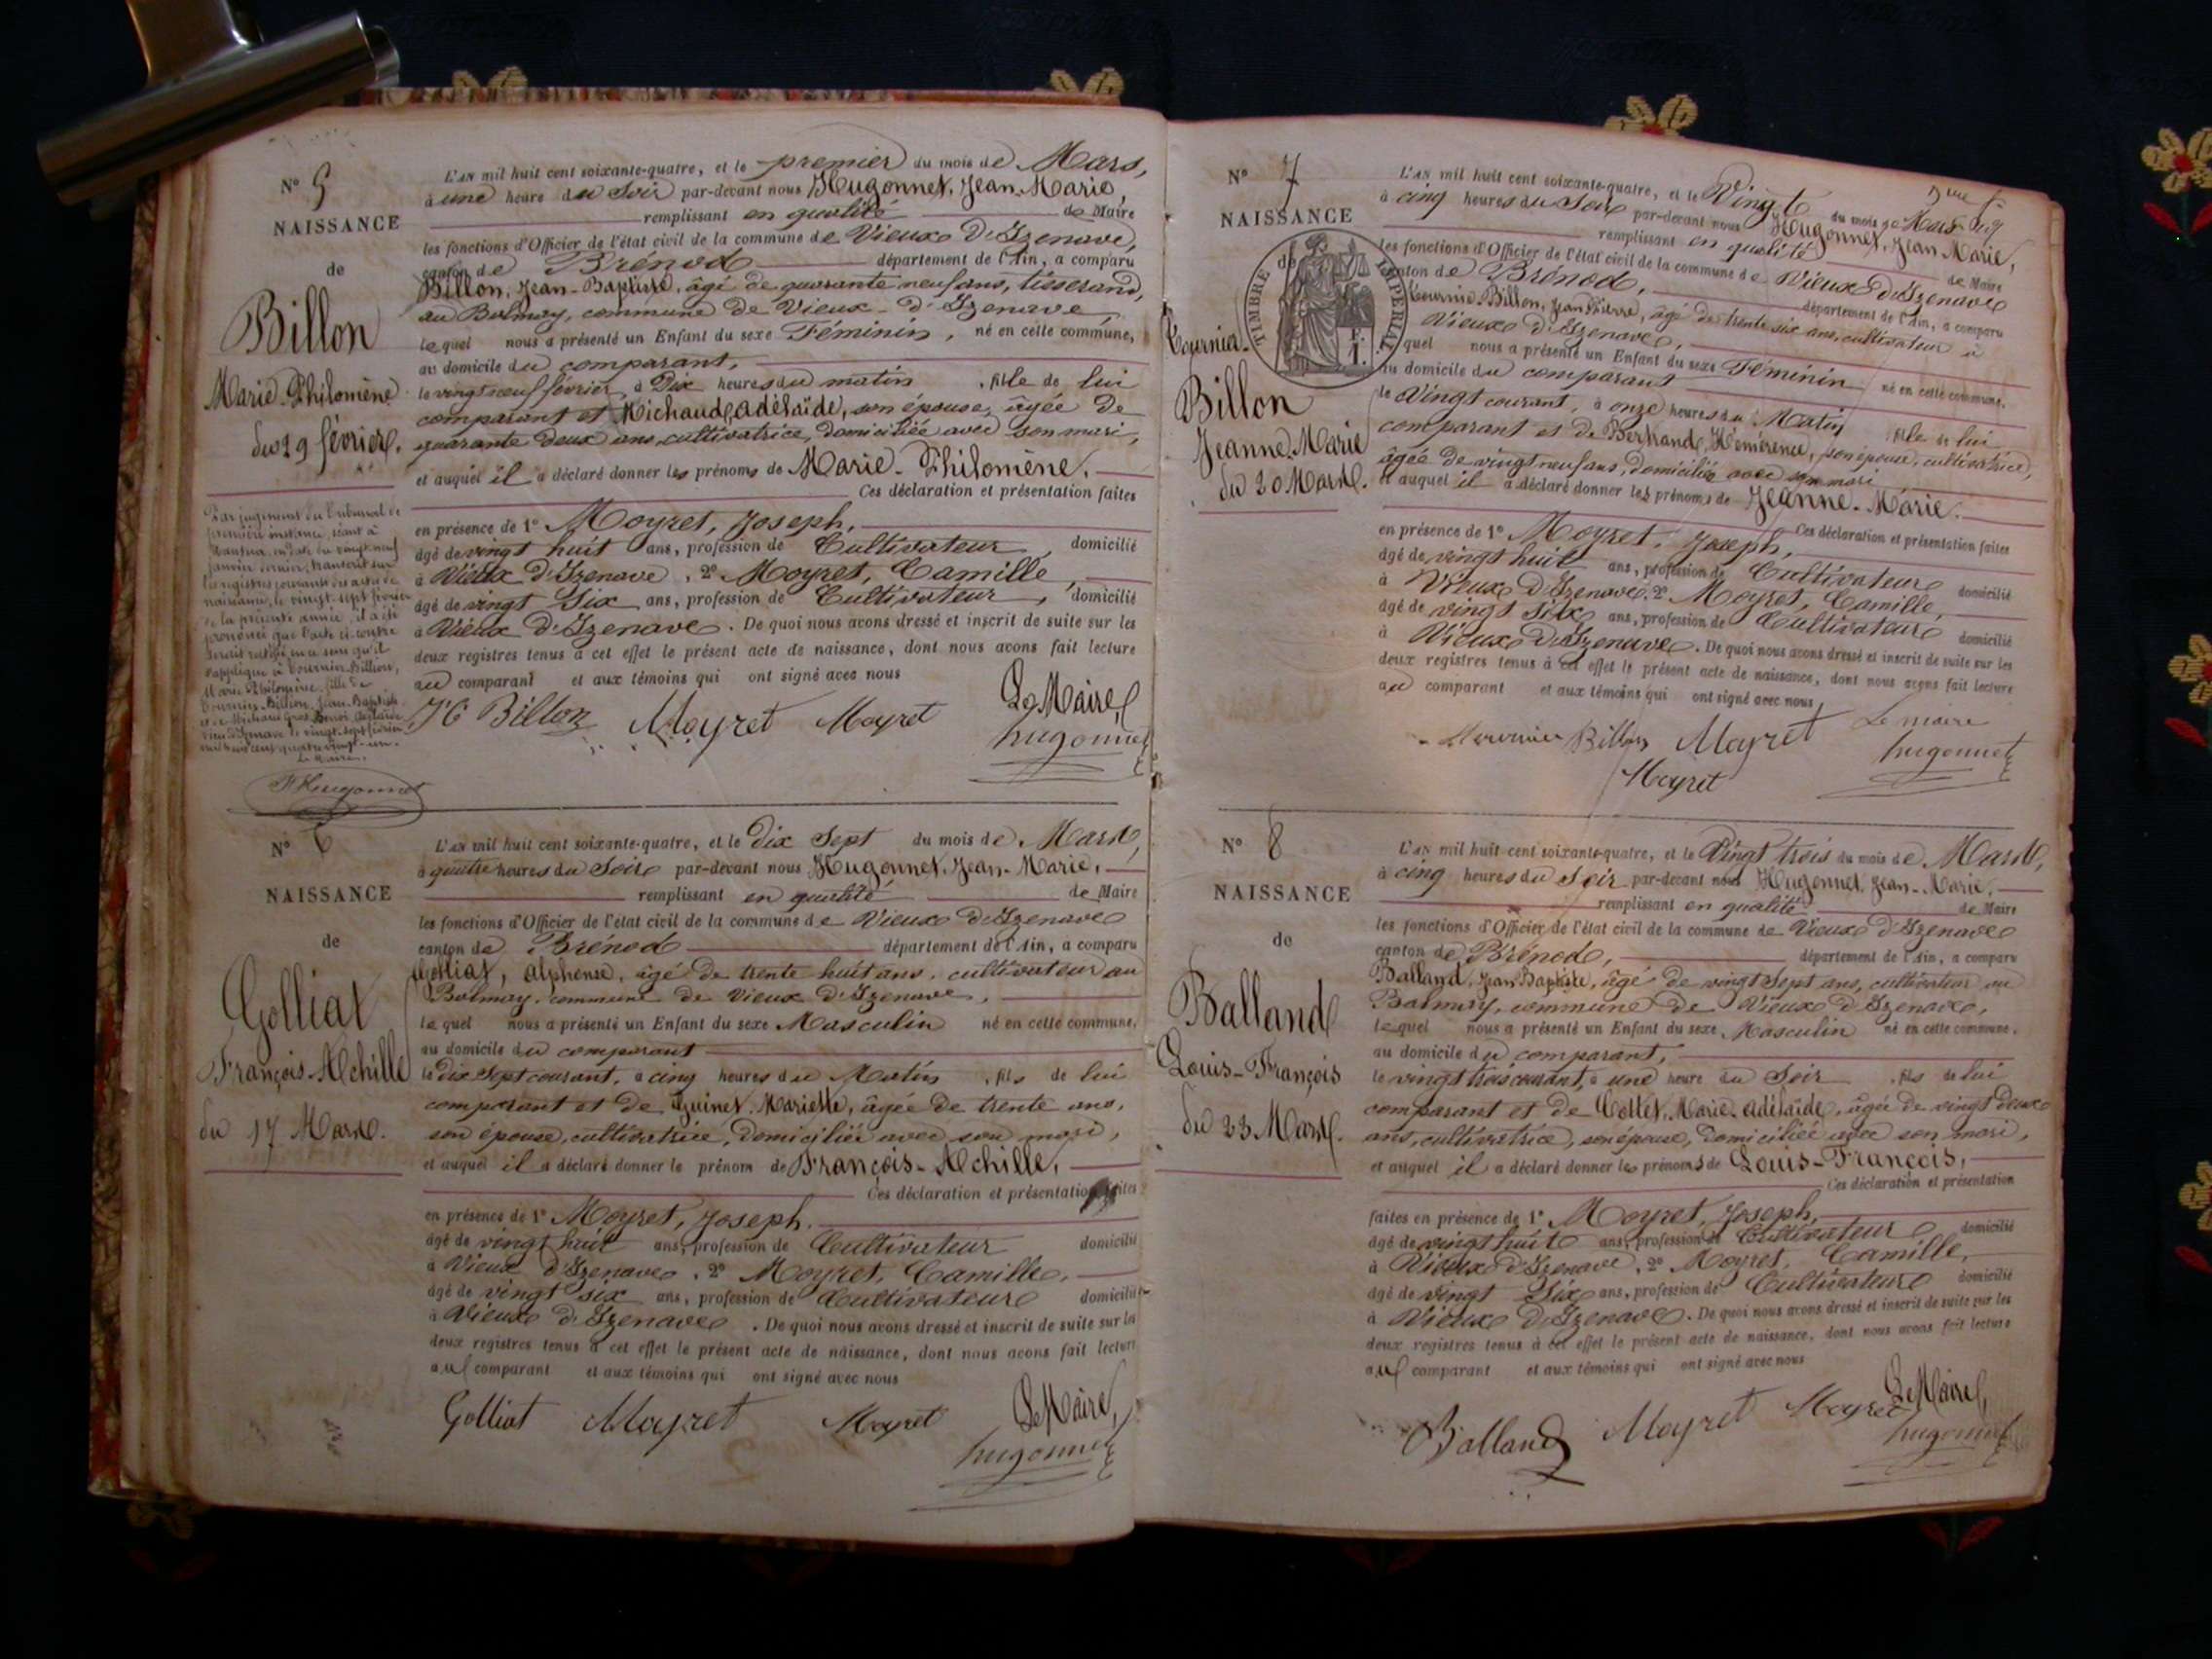 N° 5
NAISSANCE
de
Billon
Marie-Philomène
du 29 février.
Par jugement du tribunal de
première instance, séant à
Nantua, en date du vingt-neuf
janvier dernier, transcrit sur
les registres courants des actes de
naissance, le vingt-sept février
de la présente année, il a été
prononcé que l'acte ci-contre
serait rectifié en ce sens qu'il
s'applique à Tournier-Billion,
Marie Philomène, fille de
Tournier-Billon, Jean-Baptiste
et de Michaud
Vieu d'Izenave le vingt-sept février
mil huit cent quatre-vingt-un.
Le Maire,
Hugonnet
L'AN mil huit cent soixante-quatre, et le premier du mois de Mars,
à une heure du Soir par-devant nous Hugonnet, Jean-Marie,
remplissant en qualité de Maire
les fonctions d'Officier de l'état civil de la commune de Vieux d'Izenave,
canton de Brénod département de l'Ain, a comparu
Billon, Jean-Baptiste, âgé de quarante neuf ans, tisserand,
au Balmay, commune de Vieux-d'Izenave,
lequel nous a présenté un Enfant du sexe Féminin, né en cette commune,
au domicile du comparant,
le vingt neuf février, à Dix heures du matin, fille de lui
comparant et Michaud, Adélaïde, son épouse, âgée de
quarante deux ans, cultivatrice, domiciliée avec son mari,
et auquel il a déclaré donner les prénoms de Marie-Philomène.
Ces déclaration et présentation faites
en présence de 1° Moyret, Joseph,
âgé de vingt huit ans, profession de Cultivateur, domicilié
à Vieux d'Izenave, 2° Moyret, Camille,
âgé de vingt Six ans, profession de Cultivateur, domicilié
à Vieux d'Izenave. De quoi nous avons dressé et inscrit de suite sur les
deux registres tenus à cet effet le présent acte de naissance, dont nous avons fait lecture
au comparant et aux témoins qui ont signé avec nous
Le Maire,
JB Billon Moyret Moyret hugonnet
N° 6
NAISSANCE
de
Golliat
François-Achille
du 17 Mars.
L'AN mil huit cent soixante-quatre, et le dix Sept du mois de Mars,
à quatre heures du Soir par-devant nous Hugonnet, Jean-Marie,
remplissant en qualité de Maire
les fonctions d'Officier de l'état civil de la commune de Vieux d'Izenave
canton de Brénod département de l'Ain, a comparu
Golliat, Alphonse, âgé de trente huit ans, cultivateur au
Balmay, commune de Vieux d'Izenave,
lequel nous a présenté un Enfant du sexe Masculin né en cette commune,
au domicile du comparant
le dix Sept courant, à cinq heures du Matin, fils de lui
comparant et de Guinet, Mariette, âgée de trente ans,
son épouse, cultivatrice, domiciliée avec son mari,
et auquel il a déclaré donner le prénom de François-Achille,
Ces déclaration et présentation faites
en présence de 1° Moyret, Joseph.
âgé de vingt huit ans, profession de Cultivateur domicilié
à Vieux d'Izenave, 2° Moyret, Camille,
âgé de vingt six ans, profession de Cultivateur domicilié
à Vieux d'Izenave. De quoi nous avons dressé et inscrit de suite sur les
deux registres tenus à cet effet le présent acte de naissance, dont nous avons fait lecture
au comparant et aux témoins qui ont signé avec nous
Le Maire,
Golliat Moyret Moyret hugonnet
N° 7
NAISSANCE
de
TIMBRE IMPERIAL
Tournier-
Billon
Jeanne-Marie
du 20 Mars.
L'AN mil huit cent soixante-quatre, et le Vingt du mois de Mars
à cinq heures du Soir par-devant nous Hugonnet, Jean Marie,
remplissant en qualité de Maire
les fonctions d'Officier de l'état civil de la commune de Vieux d'Izenave
canton de Brénod, département de l'Ain, a comparu
Tournier-Billon, Jean Pierre, âgé de trente six ans, cultivateur à
Vieux d'Izenave,
lequel nous a présenté un Enfant du sexe Féminin né en cette commune,
au domicile du comparant
le Vingt courant, à onze heures du Matin fille de lui
comparant et de Bertrand, Hémérence, son épouse, cultivatrice,
âgée de vingt neuf ans, domiciliée avec son mari
et auquel il a déclaré donner les prénoms de Jeanne-Marie.
Ces déclaration et présentation faites
en présence de 1° Moyret, Joseph,
âgé de vingt huit ans, profession de Cultivateur domicilié
à Vieux d'Izenave, 2° Moyret, Camille,
âgé de vingt six ans, profession de Cultivateur domicilié
à Vieux d'Izenave. De quoi nous avons dressé et inscrit de suite sur les
deux registres tenus à cet effet le présent acte de naissance, dont nous avons fait lecture
au comparant et aux témoins qui ont signé avec nous
Le maire
Tournier Billon Moyret hugonnet
Moyret
N° 8
NAISSANCE
de
Balland
Louis-François
du 23 Mars.
L'AN mil huit cent soixante-quatre, et le Vingt trois du mois de Mars,
à cinq heures du Soir par-devant nous Hugonnet, Jean-Marie,
remplissant en qualité de Maire
les fonctions d'Officier de l'état civil de la commune de Vieux d'Izenave
canton de Brénod, département de l'Ain, a comparu
Balland, Jean Baptiste, âgé de vingt Sept ans, cultivateur au
Balmay, commune de Vieux d'Izenave,
lequel nous a présenté un Enfant du sexe Masculin né en cette commune,
au domicile du comparant,
le vingt trois courant, à une heure du Soir, fils de lui
comparant et de Collet, Marie-Adélaïde, âgée de vingt deux
ans, cultivatrice, son épouse, domiciliée avec son mari,
et auquel il a déclaré donner les prénoms de Louis-François,
Ces déclaration et présentation
faites en présence de 1° Moyret, Joseph,
âgé de vingt huit ans, profession de Cultivateur domicilié
à Vieux d'Izenave, 2° Moyret, Camille,
âgé de vingt Six ans, profession de Cultivateur domicilié
à Vieux d'Izenave. De quoi nous avons dressé et inscrit de suite sur les
deux registres tenus à cet effet le présent acte de naissance, dont nous avons fait lecture
au comparant et aux témoins qui ont signé avec nous
Le Maire,
Balland Moyret Moyret hugonnet